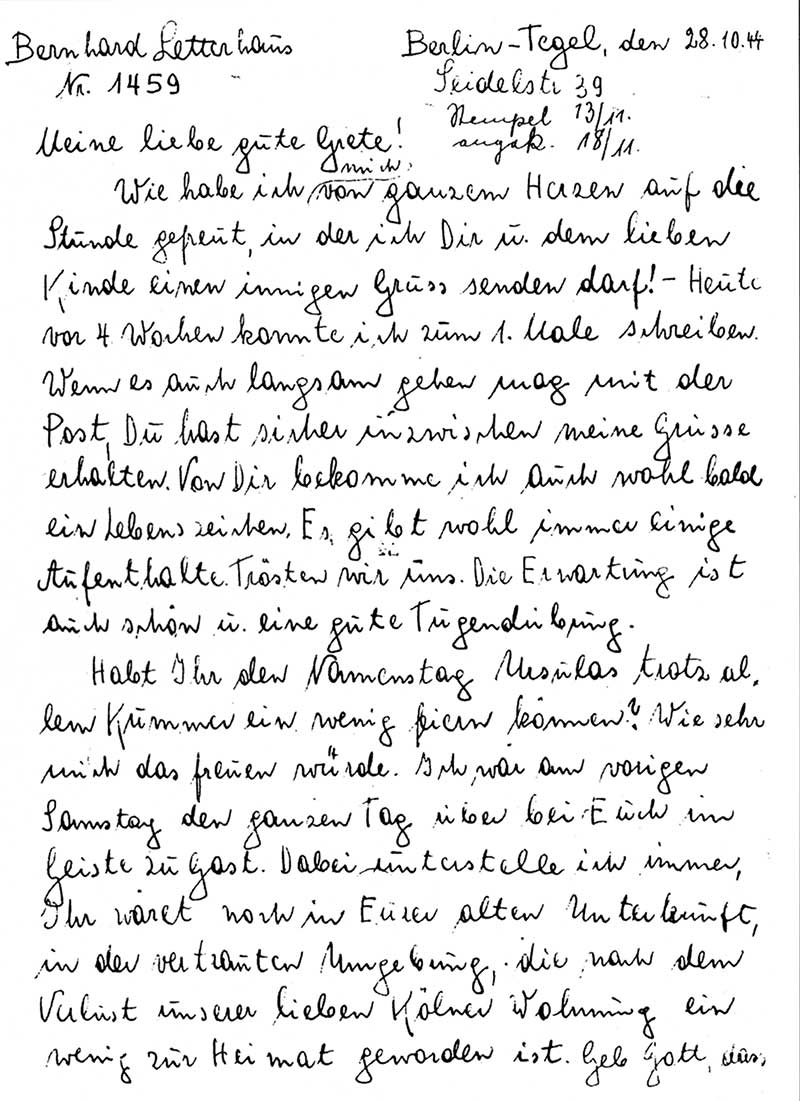 Bernhard Letterhaus
Berlin-Tegel, den 28.10.44
Nr. 1459
Seidelstr 39
Stempel 13/11.
angek. 18/11.
Meine liebe gute Grete!
mich
Wie habe ich von ganzem Herzen auf die
Stunde gefreut, in der ich Dir u. dem lieben
Kinde einen innigen Gruss senden darf! - Heute
vor 4 Wochen konnte ich zum 1. Male schreiben.
Wenn es auch langsam gehen mag mit der
Post, Du hast sicher inzwischen meine Grüsse
erhalten. Von Dir bekomme ich auch wohl bald
ein Lebenszeichen. Es gibt wohl immer einige
Aufenthalte. Trösten wir uns. Die Erwartung ist
auch schön u. eine gute Tugendübung.
Habt Ihr den Namenstag Ursulas trotz al-
lem Kummer ein wenig feiern können? Wie sehr
mich das freuen würde. Ich war am vorigen
Samstag den ganzen Tag über bei Euch im
Geiste zu Gast. Dabei unterstelle ich immer,
Ihr wäret noch in Eurer alten Unterkunft,
in der vertrauten Umgebung, die nach dem
Verlust unserer lieben Kölner Wohnung ein
wenig zur Heimat geworden ist. Geb Gott, dass